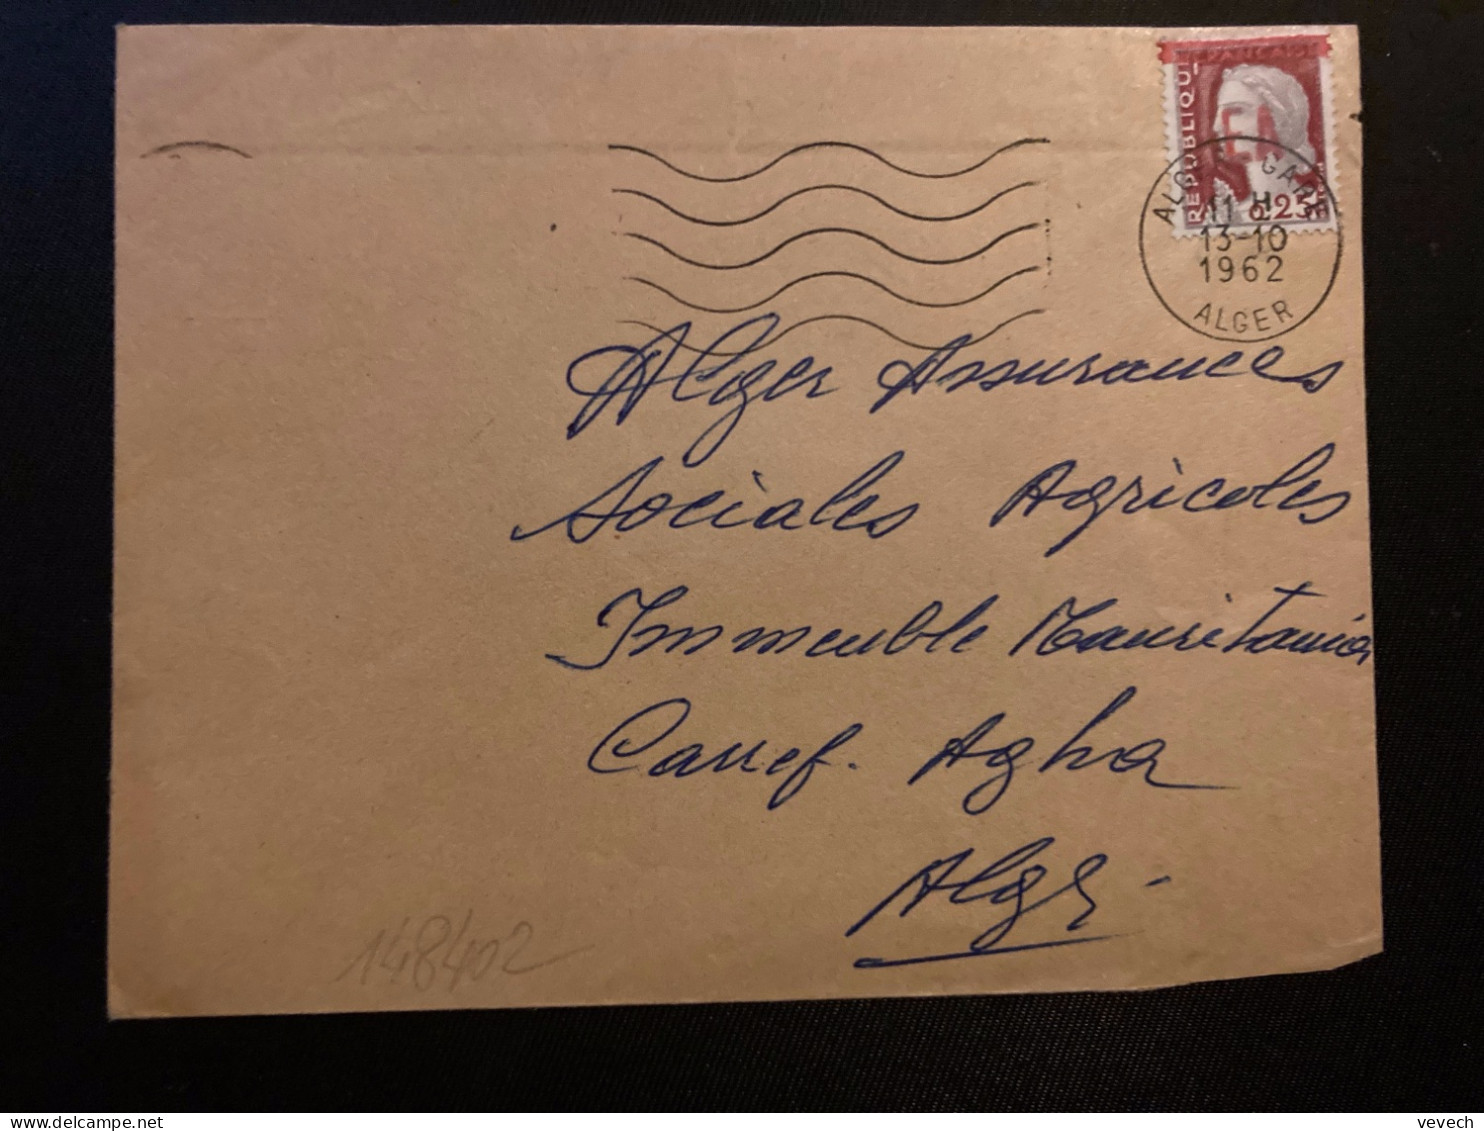 RÉPUBLIQUE
EA
0.25F
ALGER GARE
11 H
13-10
1962
ALGER
Alger Assurances
Sociales Agricoles
Immeuble Mauritania
Carref. Agha
Alger
148402
vevech